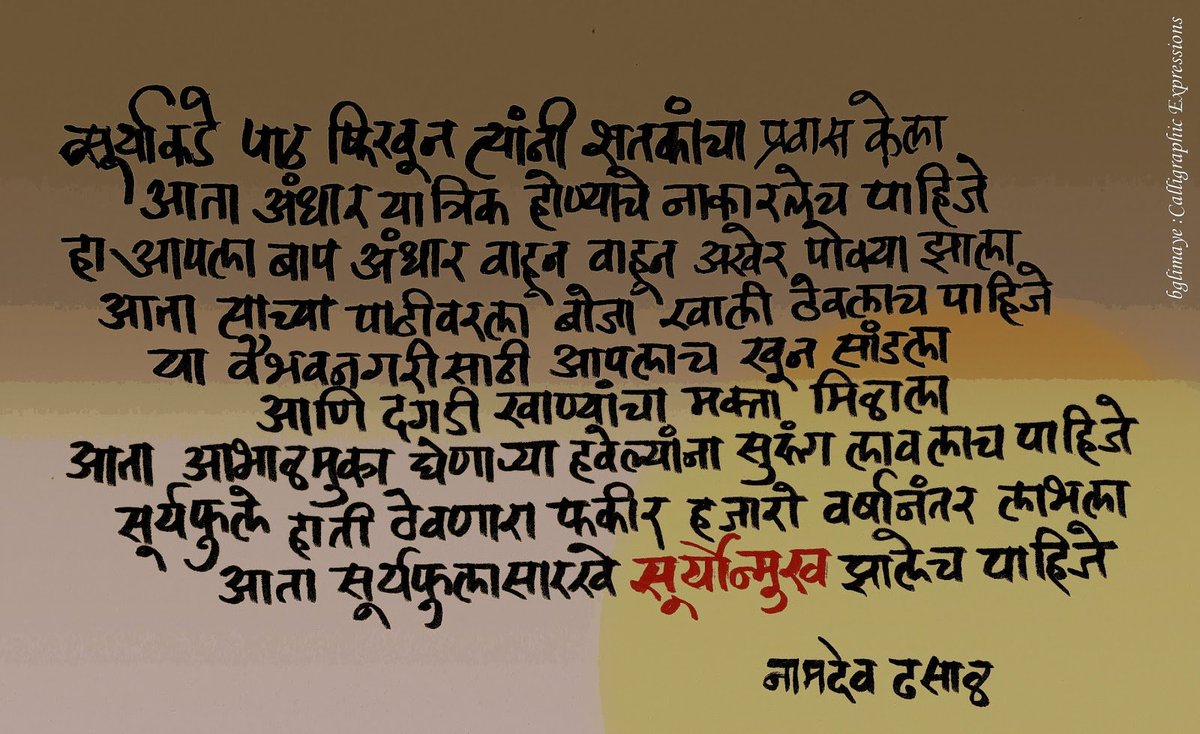 सूर्याकडे पाठ फिरवून त्यांनी शतकांचा प्रवास केला
आता अंधार यात्रिक होण्याचे नाकारलेच पाहिजे
हा आपला बाप अंधार वाहून वाहून अखेर पोक्या झाला
आता त्याच्या पाठीवरला बोजा खाली ठेवलाच पाहिजे
या वैभवनगरीसाठी आपलाच खून सांडला
आणि दगडी खाण्यांचा मक्ता मिळाला
आता आभाळमुका घेणाऱ्या हवेल्यांना सुरुंग लावलाच पाहिजे
सूर्यफुले हाती ठेवणारा फकीर हजारो वर्षानंतर लाभला
आता सूर्यफुलासारखे सूर्योन्मुख झालेच पाहिजे
नामदेव ढसाळ
bglimaye : Calligraphic Expressions